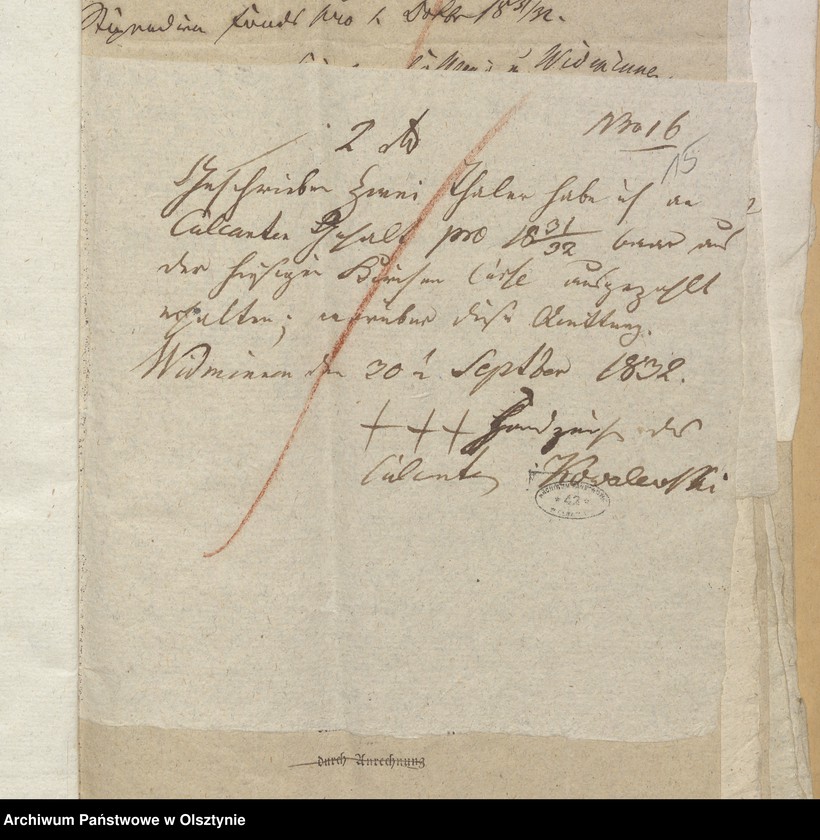 Stipendien Fonds pro 1 Dcbr 18 31/32.
Widminnen
2 rtl
Nro 16
15
Geschrieben Zwei Thaler habe ich an
Calcanten Gehalt pro 18 31/32 baar aus
der hiesigen Kirchen Casse ausgezahlt
erhalten; worüber diese Quittung.
Widminnen den 30 t Septbr 1832.
+++ Handzeich des
Calcanten Kowalewski
42
durch Anrechnung
Archiwum Państwowe w Olsztynie